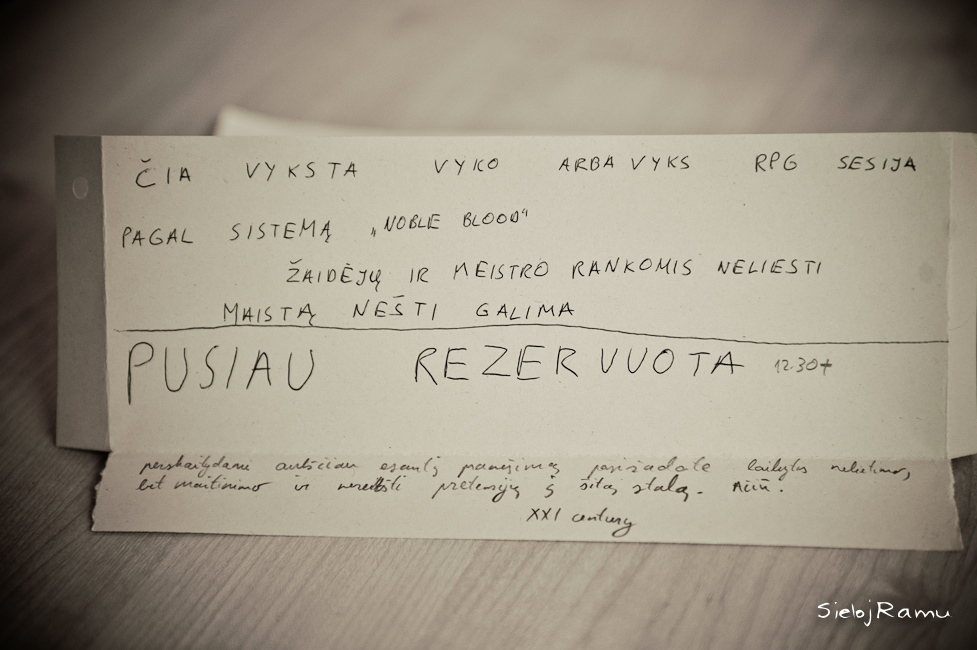 ČIA VYKSTA VYKO ARBA VYKS RPG SESIJA
PAGAL SISTEMĄ „NOBLE BLOOD“
ŽAIDĖJŲ IR MEISTRO RANKOMIS NELIESTI
MAISTĄ NEŠTI GALIMA
PUSIAU REZERVUOTA 12.30+
perskaitydami aukščiau esantį pasižadate laikytis nelietimo,
bet maitinimo ir nereikšti pretenzijų į šitą stalą. Ačiū.
XXI century
SielojRamu